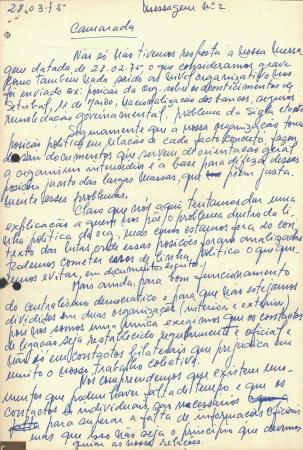 28.03-75 Mensagem nº 2
Camarada
Não só não tivemos resposta à nossa mensa
gem datada, de 28.02.75 o que consideramos grave
como também nada saído ao nível organizativo nos
foi enviado ex: posição da org. sobre os acontecimentos de
Setubal, 11 de Março, nacionalização dos bancos, seguros
remodelação governamental, problema da sigla
Seguramente que a nossa organização tomou
posição política em relação a cada facto
documentos que servem de orientação geral
a organismos intermédios e a base para difusão dessas
posições junto das largas massas, que põem justa
mente esses problemas.
Claro que nós aqui tentamos dar uma
explicação a quem nos põe o problema dentro da li
nha política da org. mas como estamos fora do con
texto das lutas onde essas posições foram analizadas
Podemos cometer erros de linha política o que que
remos evitar, em documentos escritos.
Mas ainda, para bom funcionamento
do centralismo democratico e para que não estejamos
divididos em duas organizações (interior e exterior)
pois nós somos uma única exegimos que os contactos
de ligação seja restablecido regularmente e oficial e
não só em contactos bilaterais que prejudica em
muito o nosso trabalho colectivo.
Nós compreendemos que existem mo-
mentos que podem haver falta de tempo e que os
contactos individuais, são necessarios
para superar a falta de informações oficiais
mas que isso não seja o princípio que devemos
guiar as nossas relações.